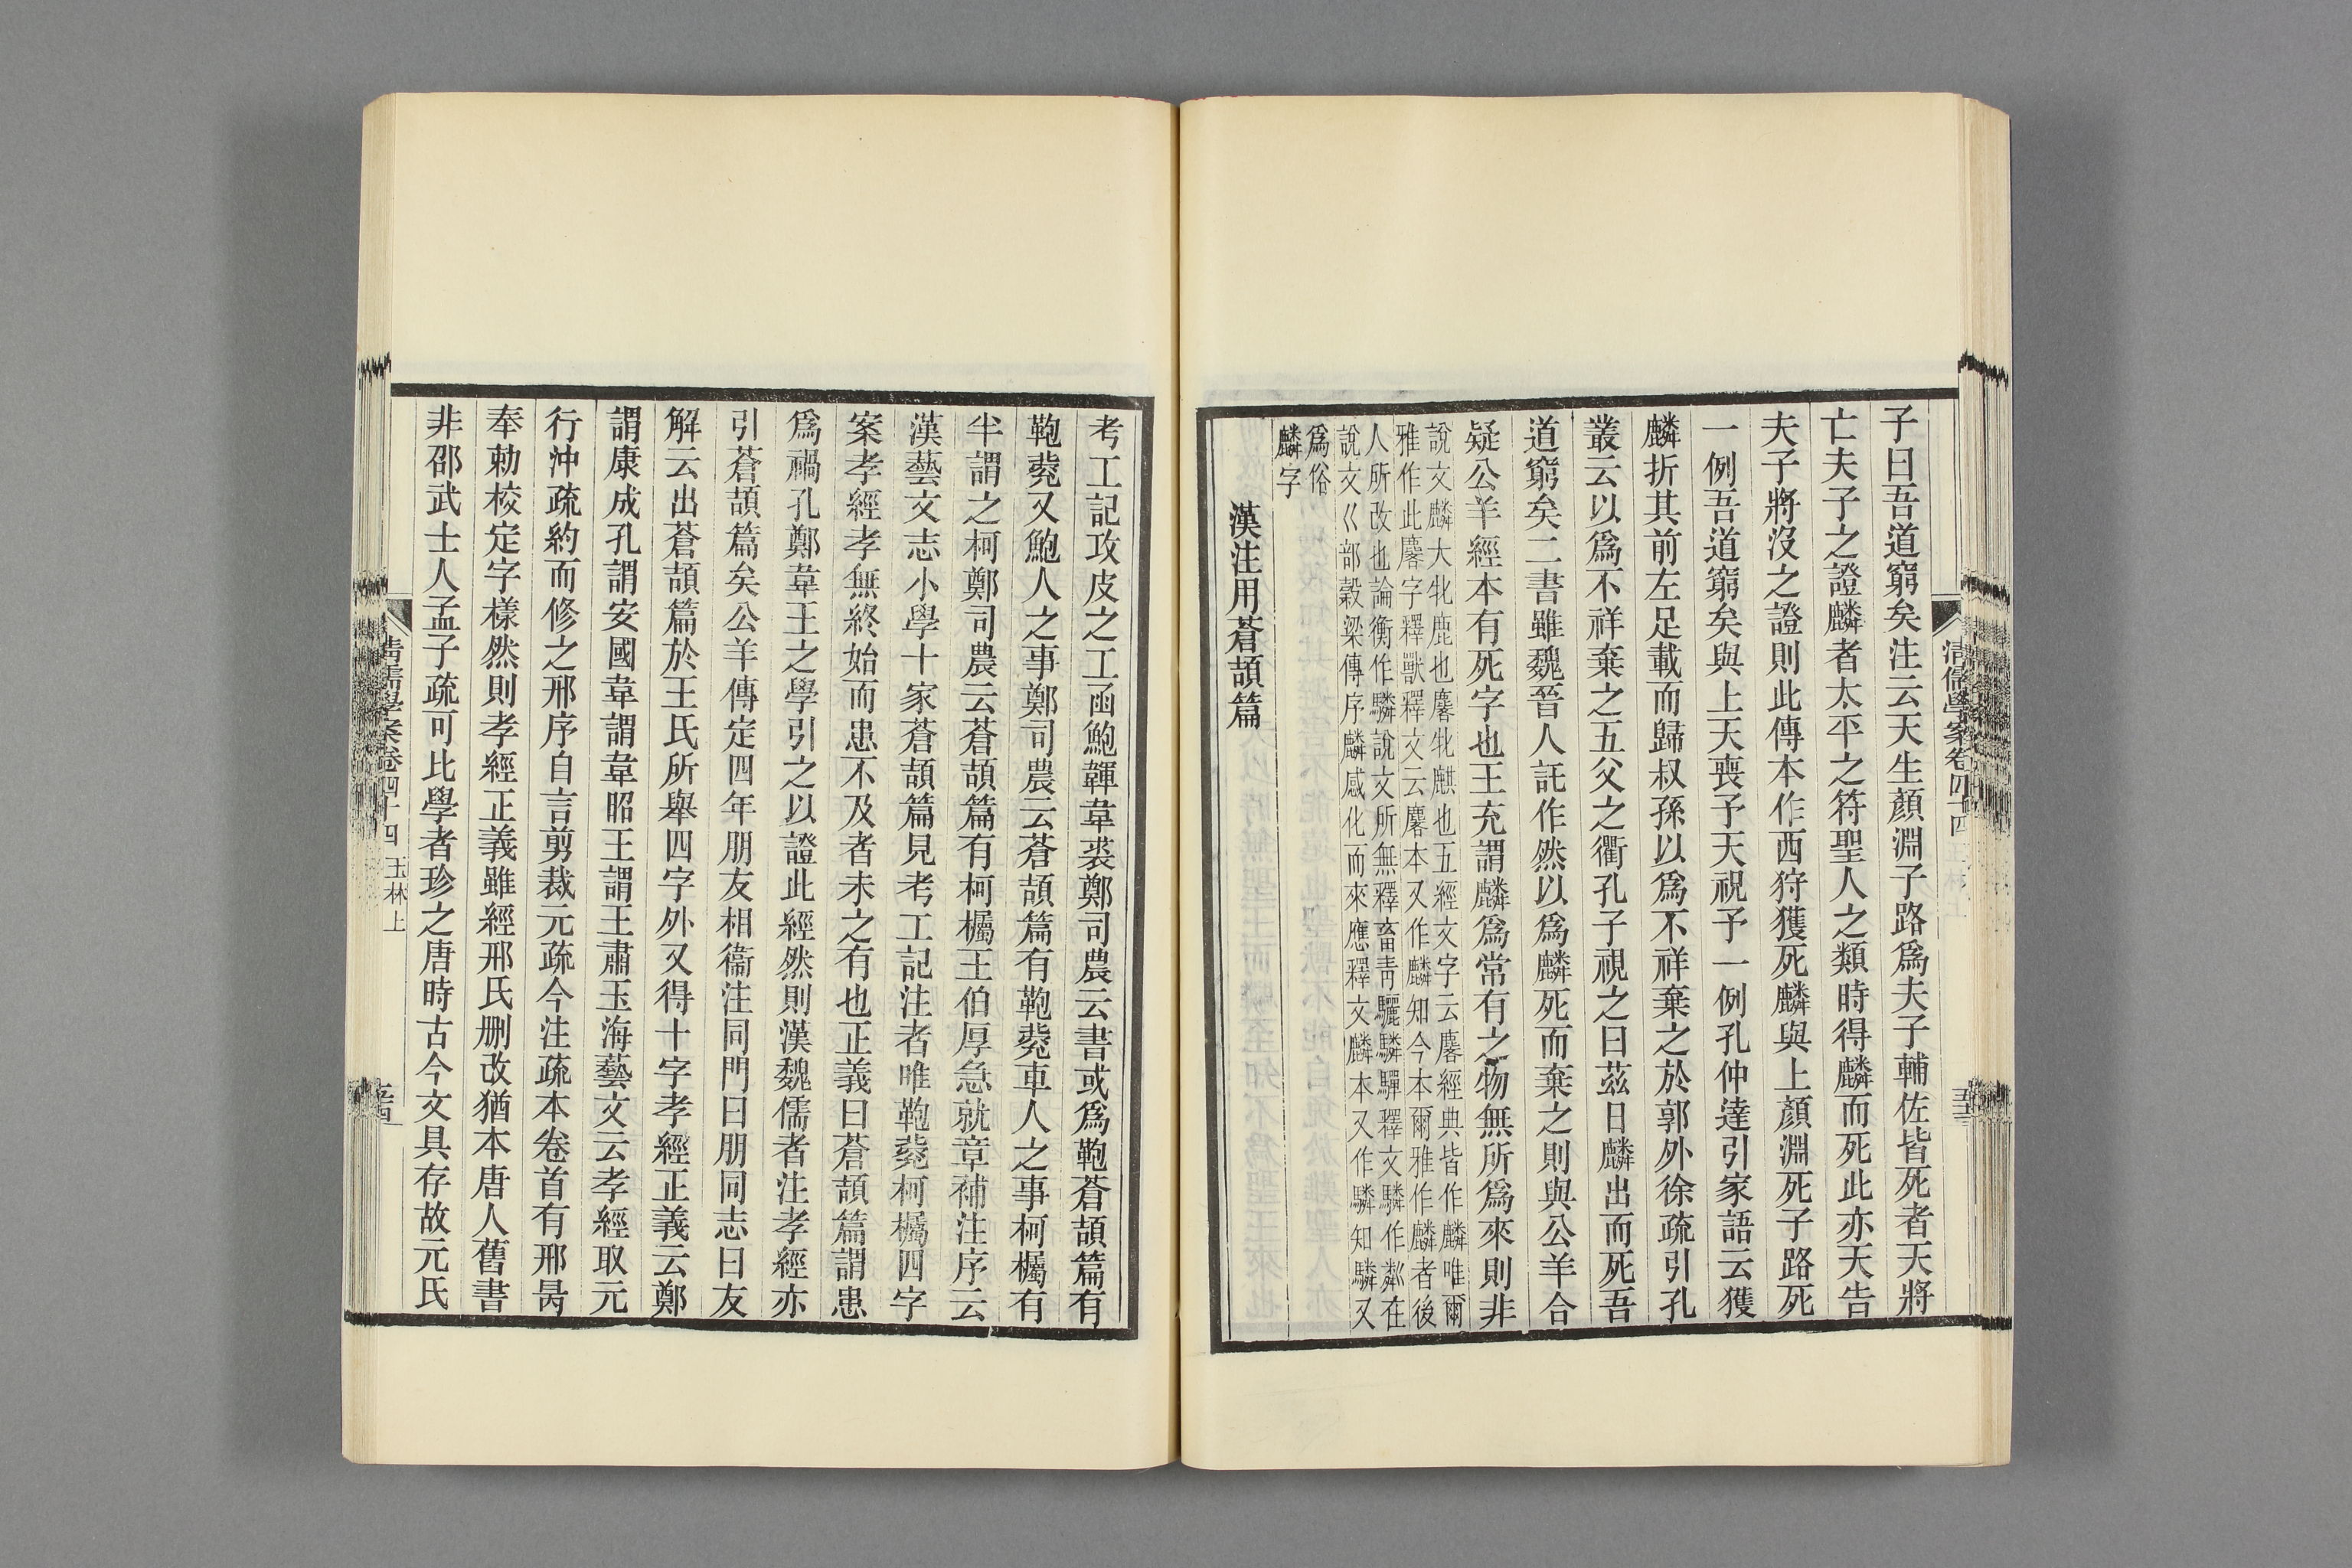 子曰吾道窮矣注云天生顏淵子路爲夫子輔佐皆死者天將
亡夫子之證麟者太平之符聖人之類時得麟而死此亦天告
夫子將沒之證則此傳本作西狩獲死麟與上顏淵死子路死
一例吾道窮矣與上天喪予天祝予一例孔仲達引家語云獲
麟折其前左足載而歸叔孫以爲不祥棄之於郭外徐疏引孔
叢云以爲不祥棄之五父之衢孔子視之曰茲日麟出而死吾
道窮矣二書雖魏晉人託作然以爲麟死而棄之則與公羊合
疑公羊經本有死字也王充謂麟爲常有之物無所爲來則非
說文麟大牝鹿也麐牝麒也五經文字云麐經典皆作麟唯爾
雅作此麐字釋獸釋文云麐本又作麟知今本爾雅作麟者後
人所改也論衡作驎說文所無釋畜靑驪驎驒釋文驎作粼在
說文巜部穀梁傳序麟感化而來應釋文麟本又作驎知驎又
爲俗
麟字
漢注用蒼頡篇
考工記攻皮之工函鮑韗韋裘鄭司農云書或爲鞄蒼頡篇有
鞄㼱又鮑人之事鄭司農云蒼頡篇有鞄㼱車人之事柯欘有
半謂之柯鄭司農云蒼頡篇有柯欘王伯厚急就章補注序云
漢藝文志小學十家蒼頡篇見考工記注者唯鞄㼱柯欘四字
案孝經孝無終始而患不及者未之有也正義曰蒼頡篇謂患
爲禍孔鄭韋王之學引之以證此經然則漢魏儒者注孝經亦
引蒼頡篇矣公羊傳定四年朋友相衞注同門曰朋同志曰友
解云出蒼頡篇於王氏所舉四字外又得十字孝經正義云鄭
謂康成孔謂安國韋謂韋昭王謂王肅玉海藝文云孝經取元
行沖疏約而修之邢序自言剪裁元疏今注疏本卷首有邢昺
奉勅校定字樣然則孝經正義雖經邢氏刪改猶本唐人舊書
非邵武士人孟子疏可比學者珍之唐時古今文具存故元氏
清儒學案卷四十四
清儒學案卷四十四 玉林上